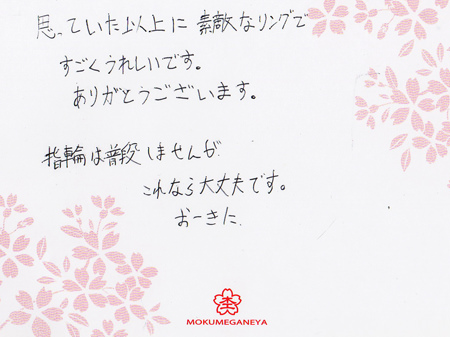 思っていた以上に素敵なリングで
すごくうれしいです。
ありがとうございます。
指輪は普段しませんが
これなら大丈夫です。
おーきに
MOKUMEGANEYA